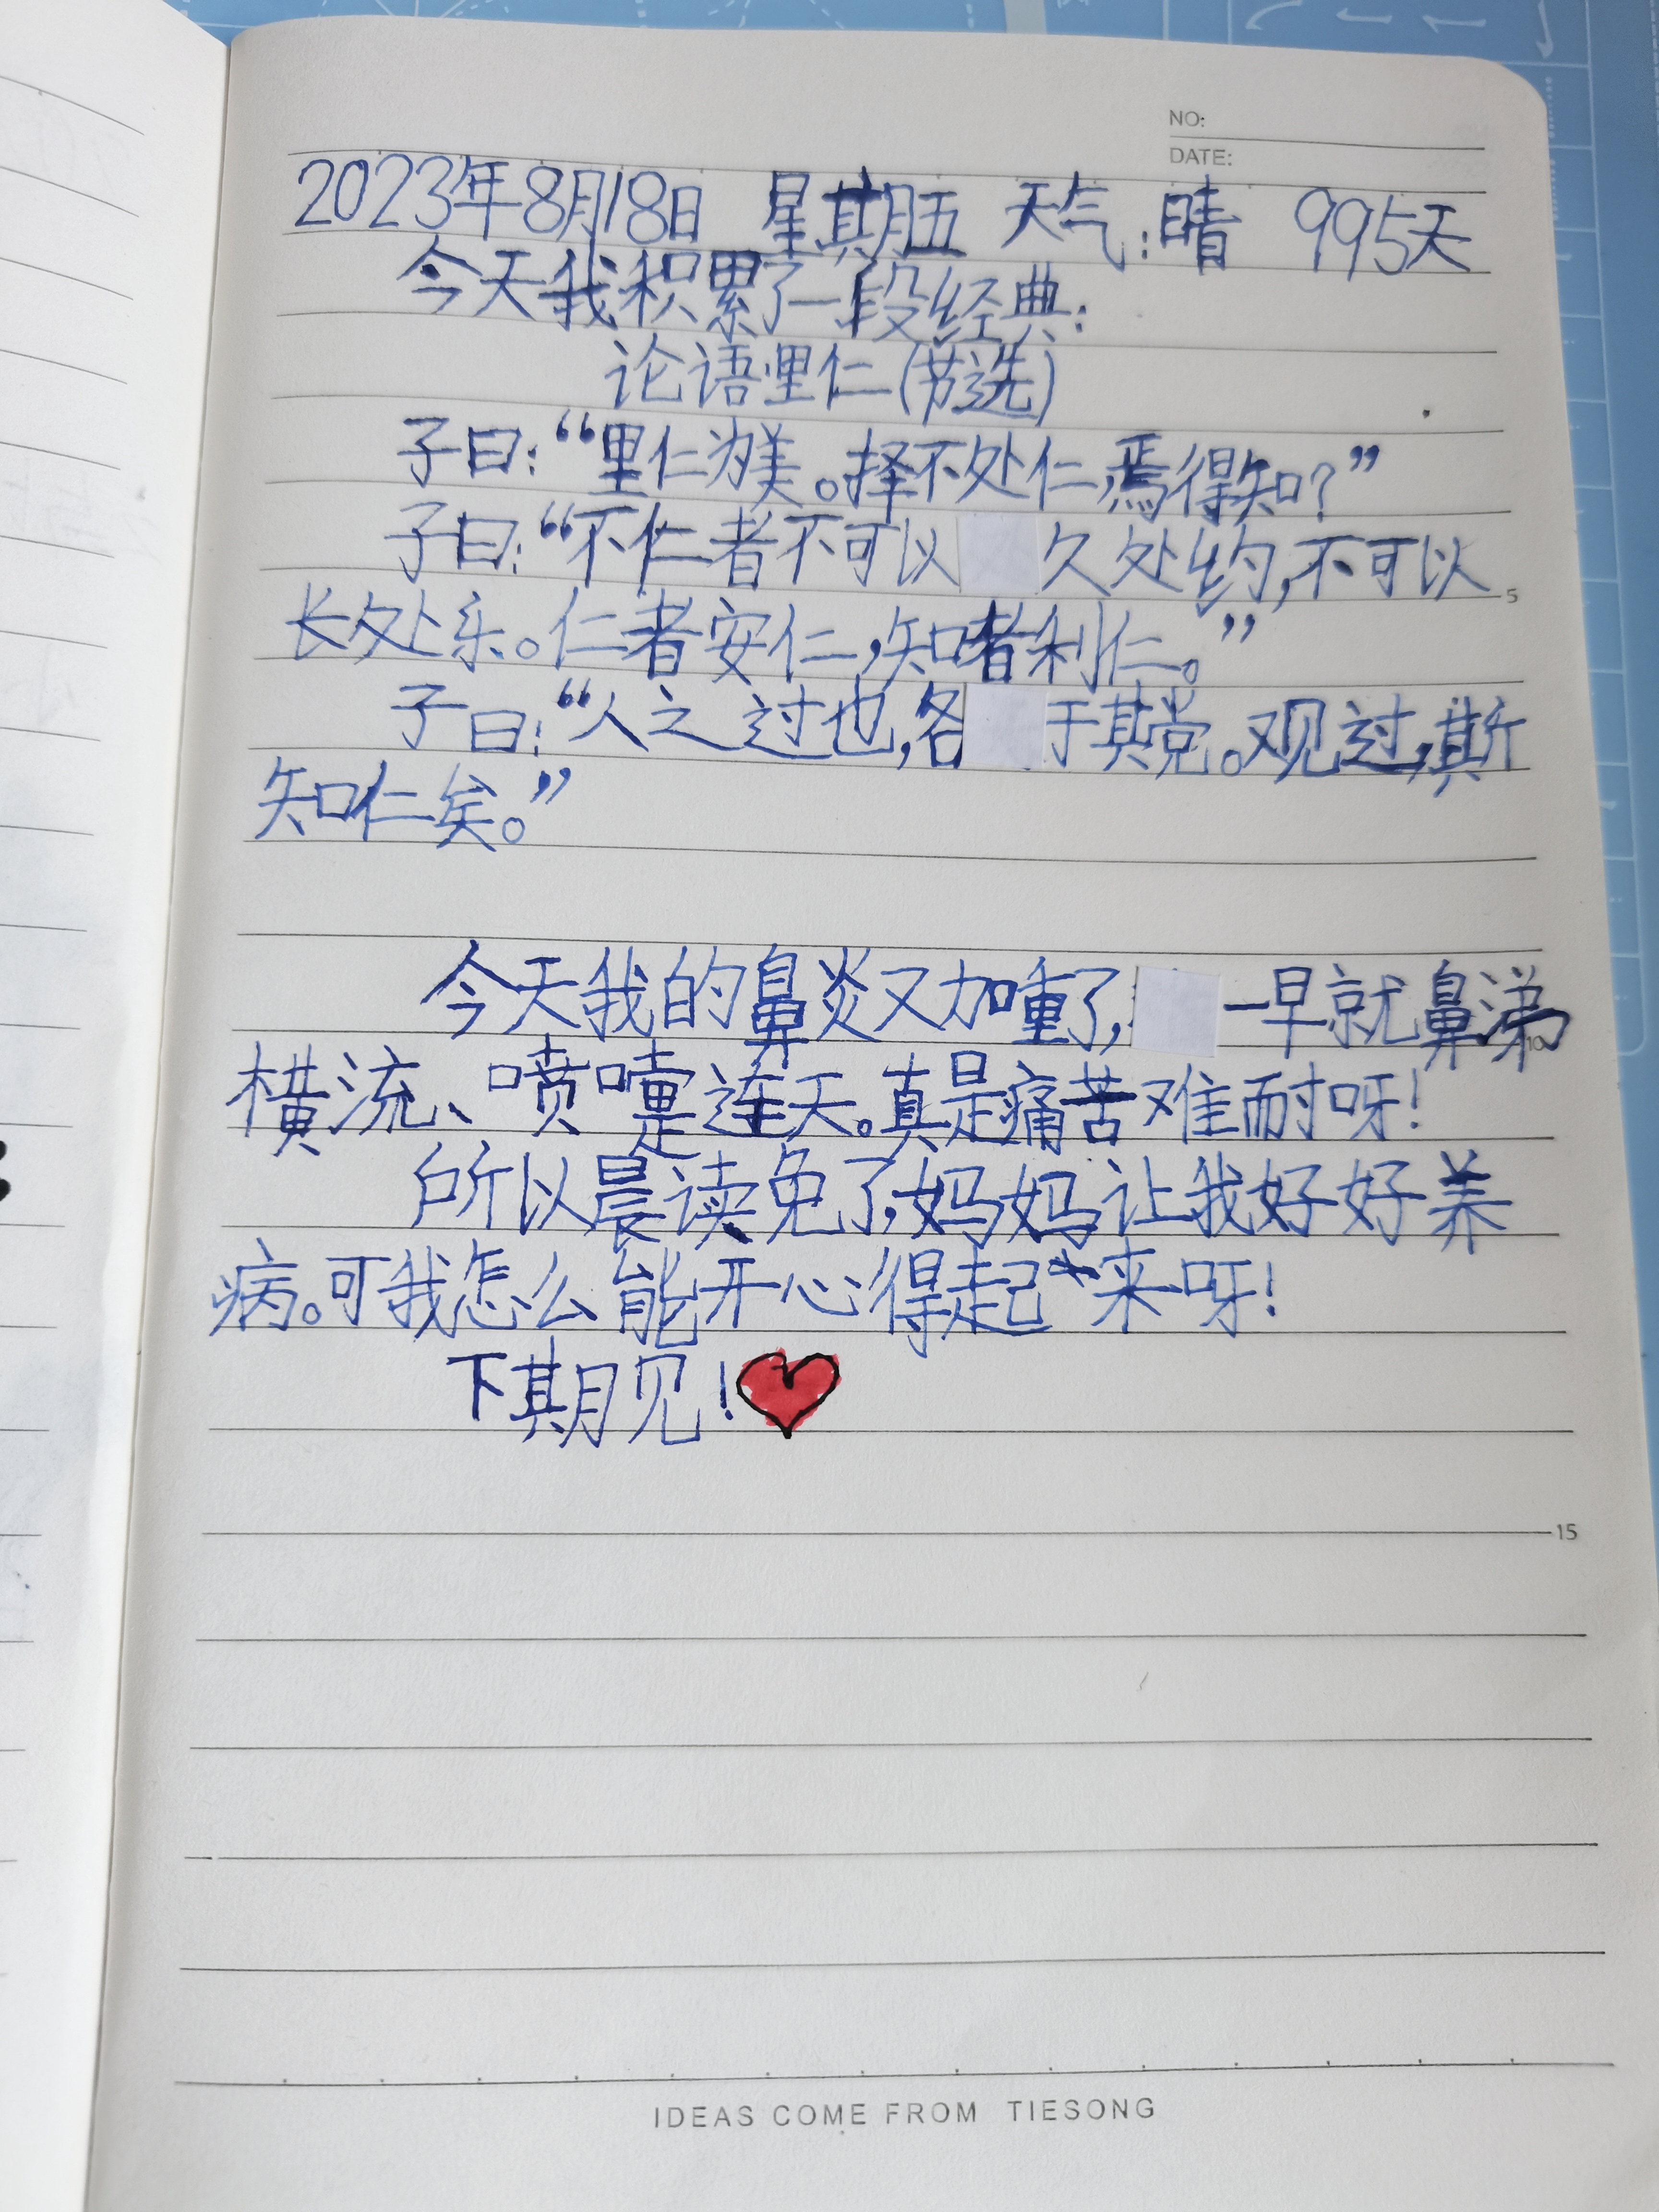 NO:
DATE:
2023年8月18日 星期五 天气:晴 995天
今天我积累了一段经典:
论语里仁(节选)
子曰:“里仁为美。择不处仁,焉得知?”
子曰:“不仁者不可以久处约,不可以
5
长处乐。仁者安仁,知者利仁。”
子曰:“人之过也,各于其党。观过,斯
知仁矣。”
今天我的鼻炎又加重了,一早就鼻涕
10
横流、喷嚏连天。真是痛苦难耐呀!
所以晨读免了,妈妈让我好好养
病。可我怎么能开心得起来呀!
下期见!
15
IDEAS COME FROM TIESONG